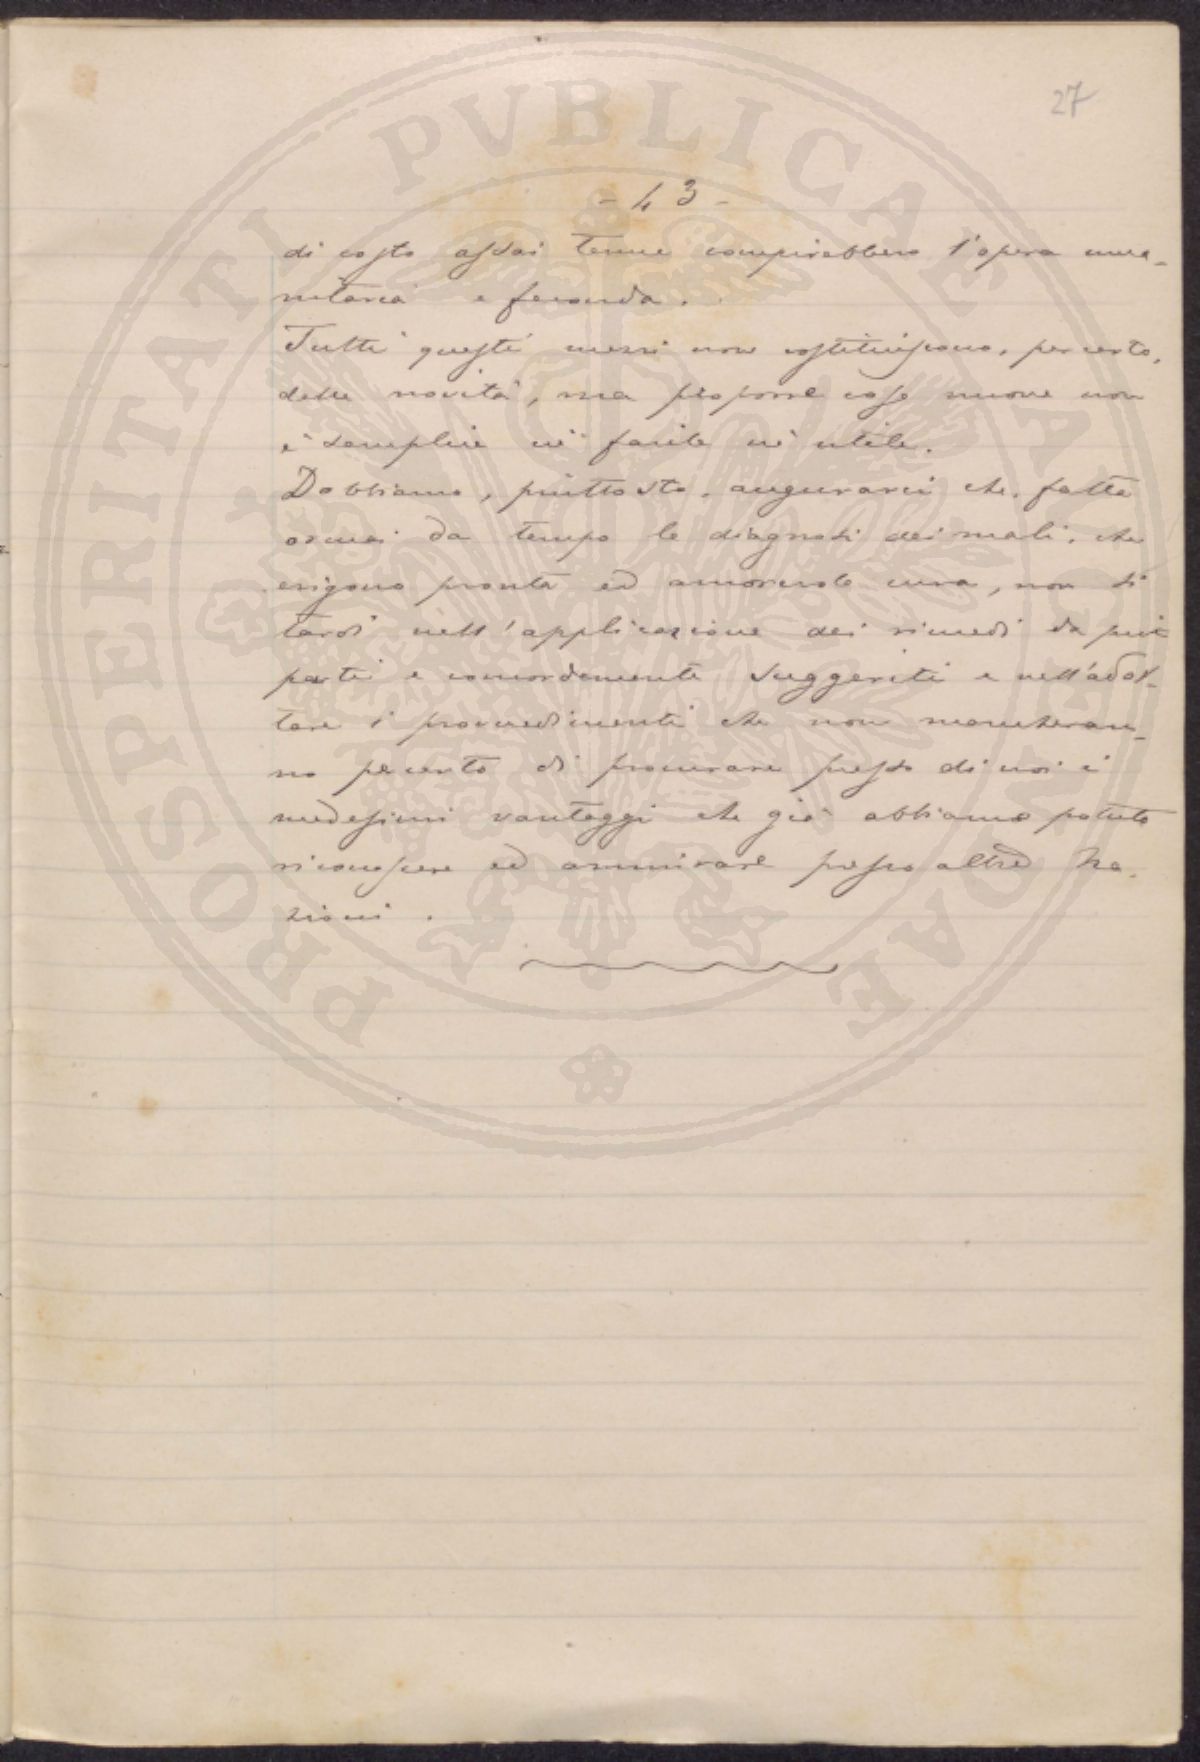 27
- 43 -
di costo assai tenue compirebbero l'opera uma-
nitaria e feconda.
Tutti questi mezzi non costituiscono, per certo,
delle novità, ma proporre cose nuove non
è semplice nè facile nè utile.
Dobbiamo, piuttosto, augurarci che, fatta
ormai da tempo la diagnosi dei mali, che
esigono pronta ed amorevole cura, non si
tardi nell'applicazione dei rimedi da più
parti e concordemente suggeriti e nell'adot-
tare i provvedimenti che non mancheran-
no per certo di procurare presso di noi i
medesimi vantaggi che già abbiamo potuto
riconoscere ed ammirare presso altre na-
zioni.
PROSPERITATI PVBLICAE AVGENDAE